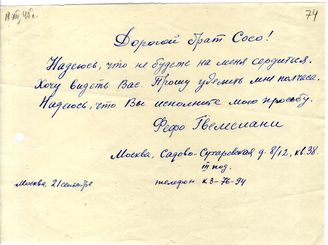 74
Дорогой брат Сосо!
Надеюсь, что не будете на меня сердиться.
Хочу видеть Вас. Прошу уделить мне полчаса.
Надеюсь, что Вы исполните мою просьбу.
Фефо Гвелесиани
Москва, Садово-Сухаревская д 8/12, кв.38.
III под.
Москва, 21 сентября
телефон К 3-76-94